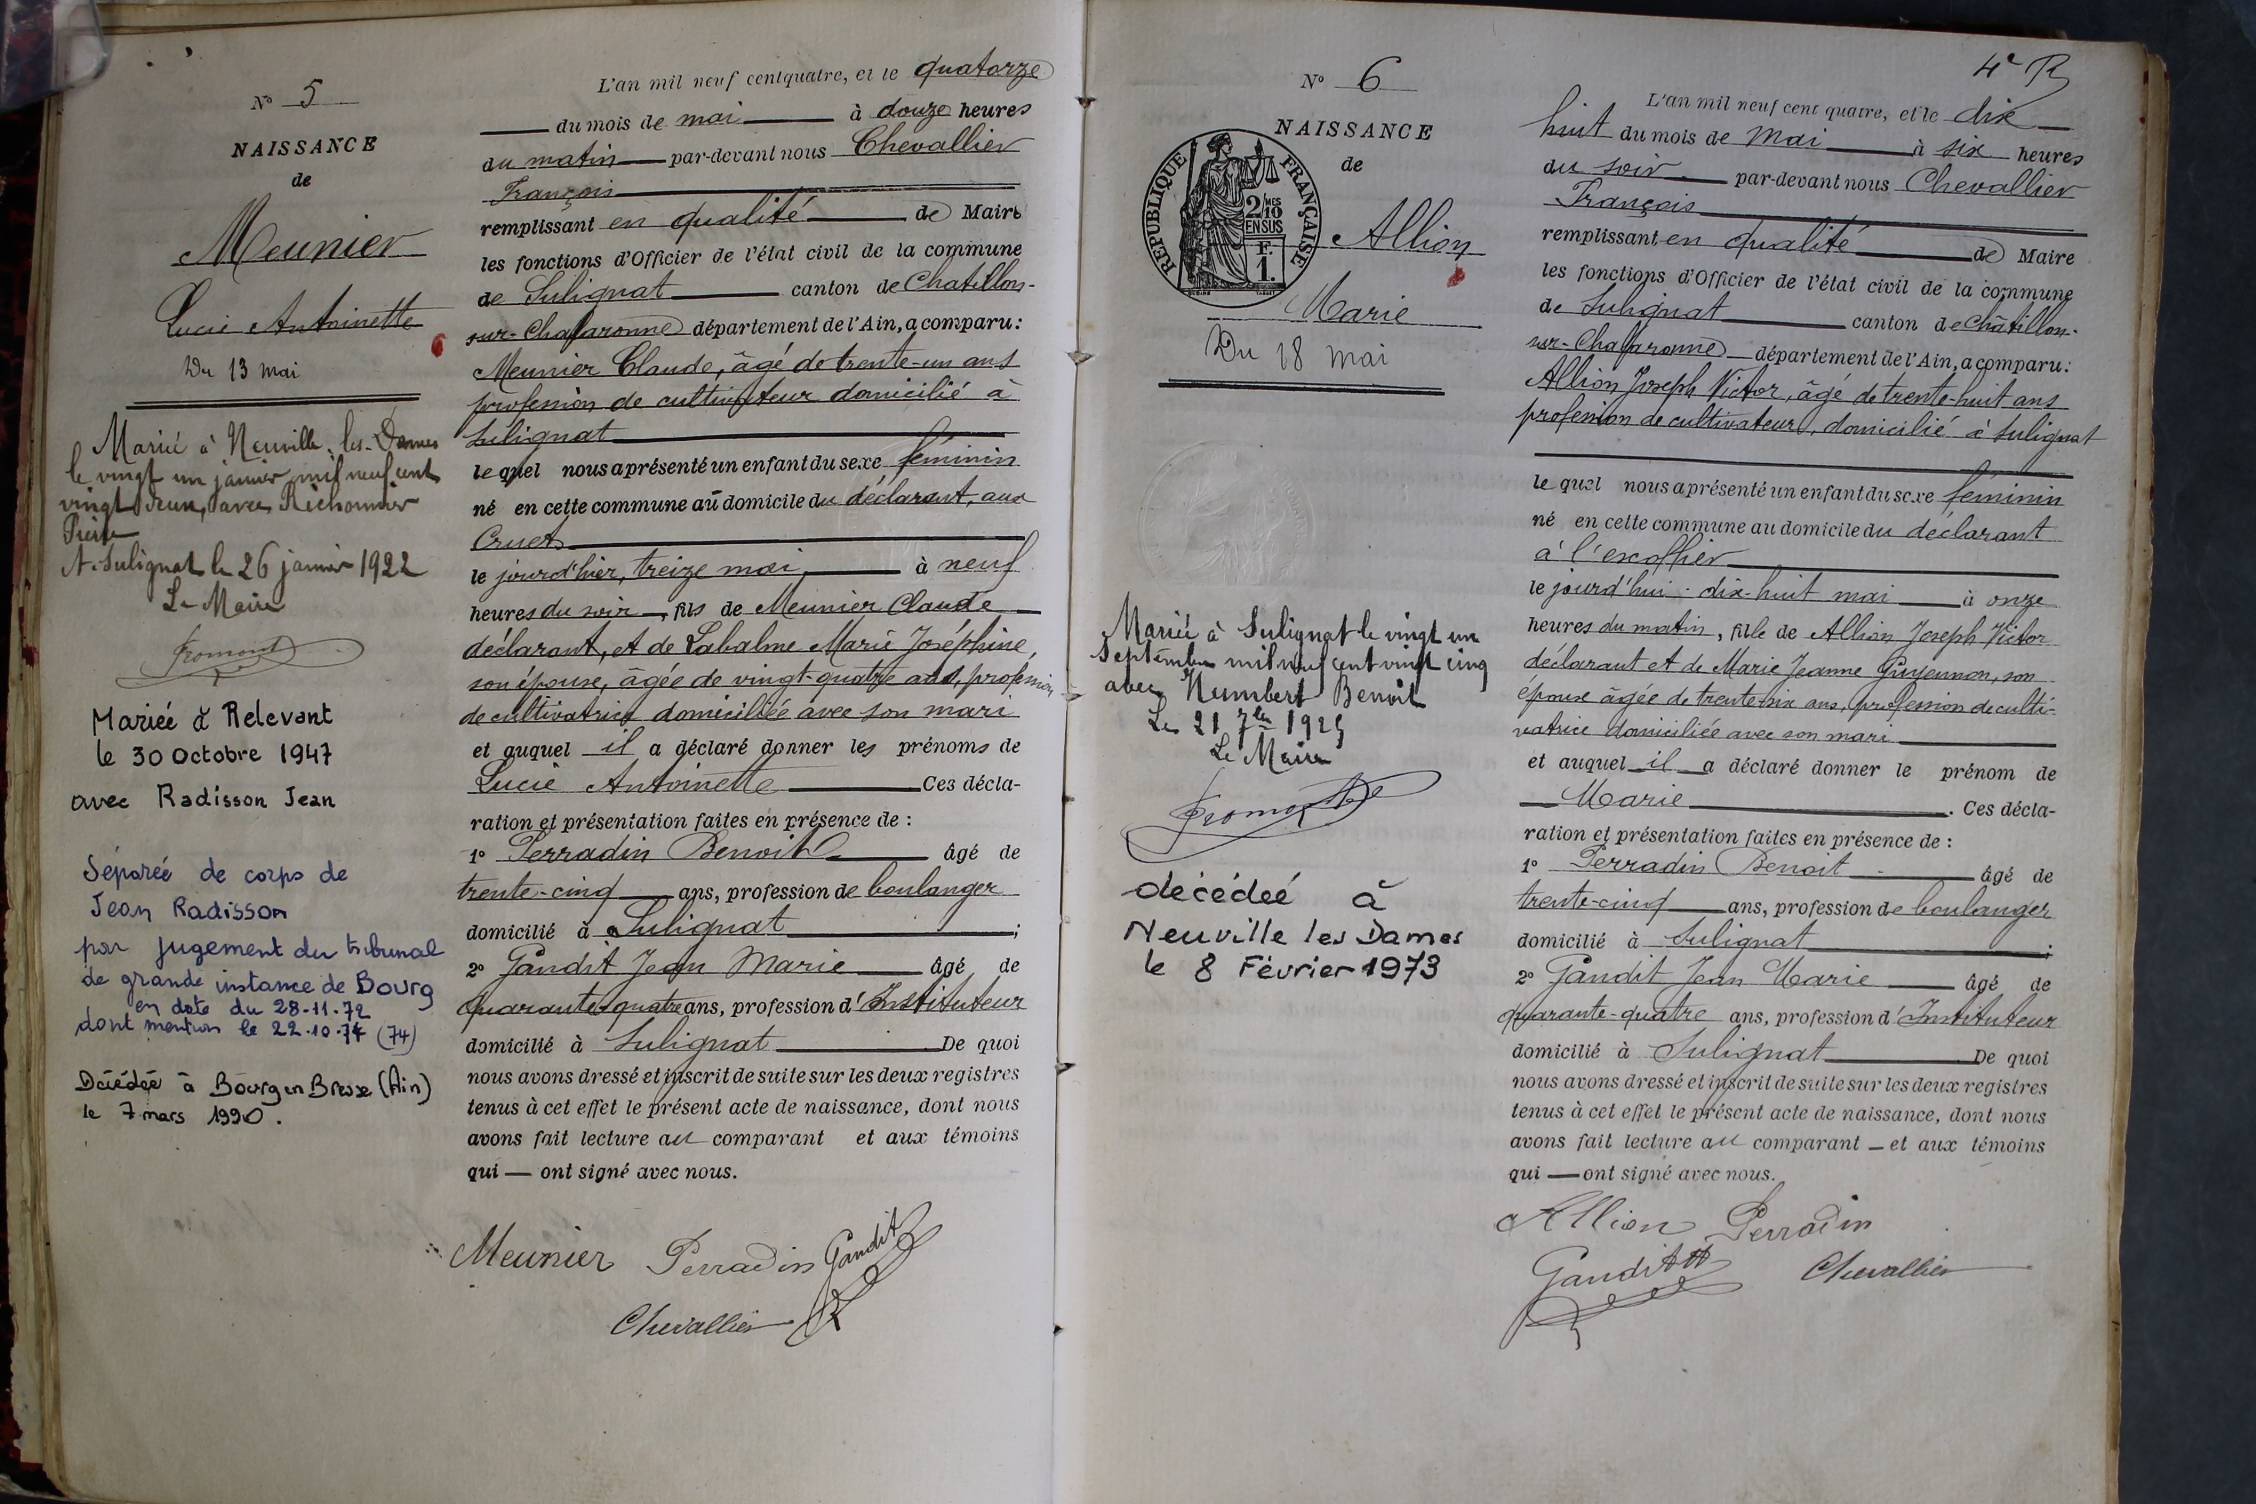 N° 5
NAISSANCE
de
Meunier
Lucie Antoinette
Du 13 mai
Mariée à Neuville-les-Dames
le vingt un janvier mil neuf cent
vingt deux, avec Richonnier
Pierre
A Sulignat le 26 janvier 1922
Le Maire
Fromont
Mariée à Relevant
le 30 Octobre 1947
avec Radisson Jean
Séparée de corps de
Jean Radisson
par jugement du tribunal
de grande instance de Bourg
en date du 28.11.72
dont mention le 22.10.74 (74)
Décédée à Bourg en Bresse (Ain)
le 7 mars 1990.
L'an mil neuf cent quatre, et le quatorze
du mois de mai à douze heures
du matin par-devant nous Chevallier
François
remplissant en qualité de Maire
les fonctions d'Officier de l'état civil de la commune
de Sulignat canton de Chatillon-
sur-Chalaronne département de l'Ain, a comparu :
Meunier Claude, âgé de trente-un ans
profession de cultivateur domicilié à
Sulignat
le quel nous a présenté un enfant du sexe féminin
né en cette commune au domicile du déclarant, aux
Cruets
le jourd'hier, treize mai, à neuf
heures du soir, fils de Meunier Claude
déclarant, et de Labalme Marie Joséphine,
son épouse, âgée de vingt-quatre ans, profession
de cultivatrice domiciliée avec son mari
et auquel il a déclaré donner les prénoms de
Lucie Antoinette Ces décla-
ration et présentation faites en présence de :
1° Perradin Benoit âgé de
trente-cinq ans, profession de boulanger
domicilié à Sulignat ;
2° Gandit Jean Marie âgé de
quarante-quatre ans, profession d'Instituteur
domicilié à Sulignat De quoi
nous avons dressé et inscrit de suite sur les deux registres
tenus à cet effet le présent acte de naissance, dont nous
avons fait lecture au comparant et aux témoins
qui — ont signé avec nous.
Meunier Perradin Gandit
Chevallier
4e R
N° 6
NAISSANCE
de
RÉPUBLIQUE FRANÇAISE
2/10 MES
EN SUS
F.
1.
Allion
Marie
Du 18 mai
Mariée à Sulignat le vingt un
Septembre mil neuf cent vingt cinq
avec Humbert Benoit
Le 21 7bre 1925
Le Maire
Fromont
décédée à
Neuville les Dames
le 8 Février 1973
L'an mil neuf cent quatre, et le dix
huit du mois de mai à six heures
du soir par-devant nous Chevallier
François
remplissant en qualité de Maire
les fonctions d'Officier de l'état civil de la commune
de Sulignat canton de Châtillon-
sur-Chalaronne département de l'Ain, a comparu :
Allion Joseph Victor, âgé de trente-huit ans
profession de cultivateur, domicilié à Sulignat
le quel nous a présenté un enfant du sexe féminin
né en cette commune au domicile du déclarant
à l'escoffier
le jourd'hui dix-huit mai à onze
heures du matin, fille de Allion Joseph Victor
déclarant et de Marie Jeanne Guyennon, son
épouse âgée de trente-six ans, profession de culti-
vatrice domiciliée avec son mari
et auquel il a déclaré donner le prénom de
Marie . Ces décla-
ration et présentation faites en présence de :
1° Perradin Benoit âgé de
trente-cinq ans, profession de boulanger
domicilié à Sulignat ;
2° Gandit Jean Marie âgé de
quarante-quatre ans, profession d'Instituteur
domicilié à Sulignat De quoi
nous avons dressé et inscrit de suite sur les deux registres
tenus à cet effet le présent acte de naissance, dont nous
avons fait lecture au comparant — et aux témoins
qui — ont signé avec nous.
Allion Perradin
Gandit Chevallier